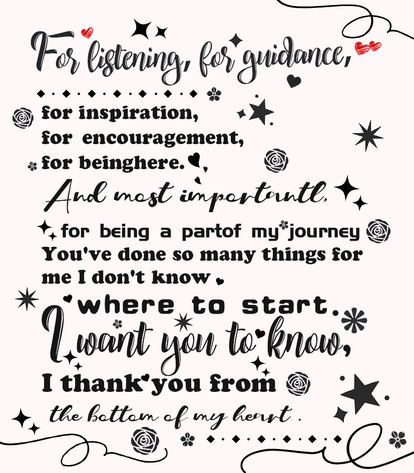 For listening, for guidance,
for inspiration,
for encouragement,
for beinghere.
And most importantl.
for being a partof my journey
You've done so many things for
me I don't know
where to start.
I want you to know,
I thank you from
the bottom of my heart .